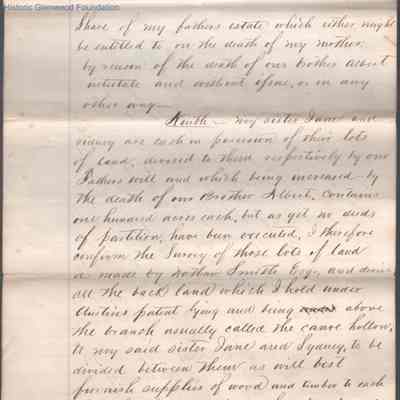 Historic Glenwood Foundation
Share of my fathers estate which either might
be entitled to on the death of my mother,
by reason of the death of our brother Albert
intestate and without issue, or in any
other way—
Ninth — My sister Jane and
Sidney are each in possession of their lots
of land, devised to them respectively by our
Fathers will and which being increased by
the death of our Brother Albert, contains
one hundred acres each, but as yet no deeds
of partition, have been executed, I therefore
confirm the Survey of those lots of land
as made by Nathan Smith Esqr, and devise
all the back land which I hold under
Austins patent lying and being above
the branch usually called the canoe hollow,
to my said sister Jane and Sydney, to be
divided between them as will best
furnish supplies of wood and timber to each